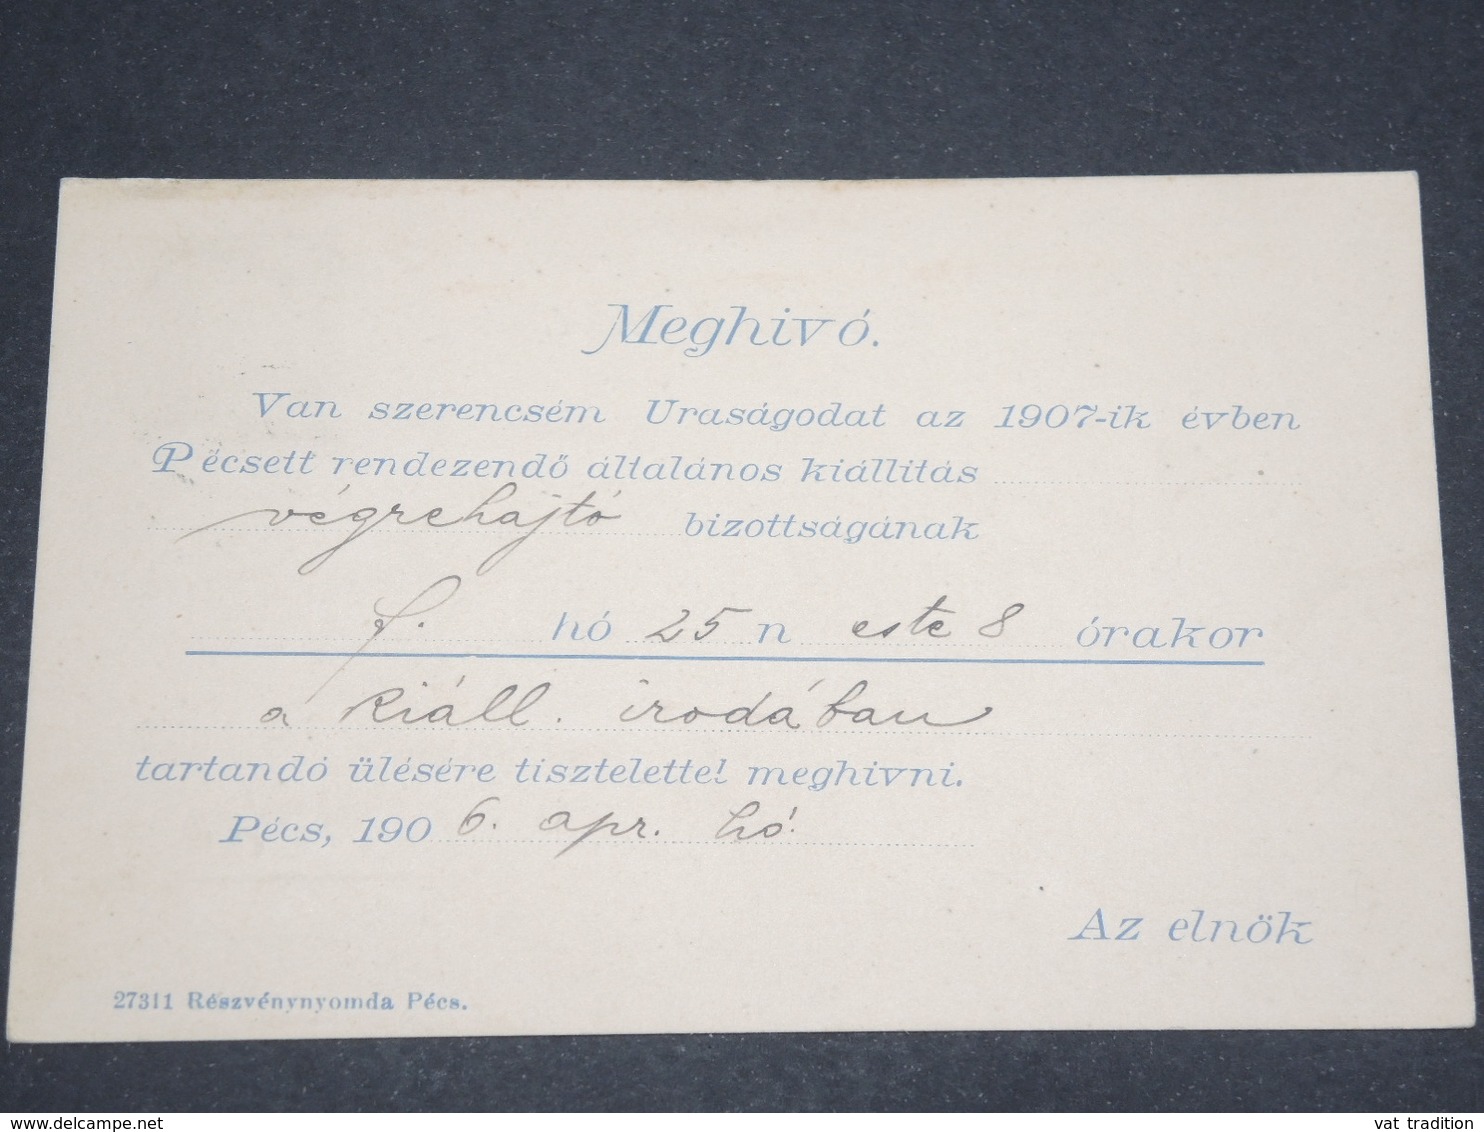 Meghivó.
Van szerencsém Uraságodat az 1907-ik évben
Pécsett rendezendő általános kiállitás
végrehajtó bizottságának
f. hó 25 n este 8 órakor
a kiáll. irodában
tartandó ülésére tisztelettel meghivni.
Pécs, 1906. apr. hó.
Az elnök
27311 Részvénynyomda Pécs.
vat tradition